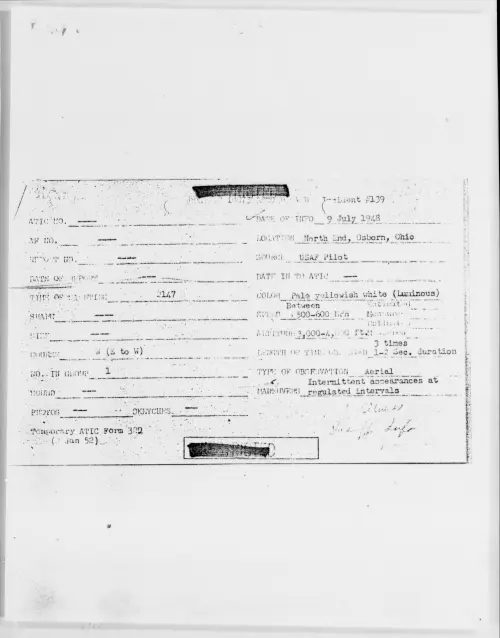 Incident #139
ATIC NO. ——
DATE OF INFO 9 July 1948
AF NO. ——
LOCATION North End, Osborn, Ohio
REPORT NO. ——
SOURCE USAF Pilot
DATE OF REPORT ——
DATE IN TO ATIC ——
TIME OF SIGHTING 2147
COLOR Pale yellowish white (Luminous)
SHAPE ——
Between
SPEED 300-600
SIZE ——
ALTITUDE 3,000-4, ft.
COURSE W (E to W)
3 times
LENGTH OF TIME 1-2 Sec. duration
NO. IN GROUP 1
TYPE OF OBSERVATION Aerial
SOUND ——
Intermittent appearances at
MANEUVERS regulated intervals
PHOTOS —— SKETCHES ——
Temporary ATIC Form 322
( Jan 52)
Info